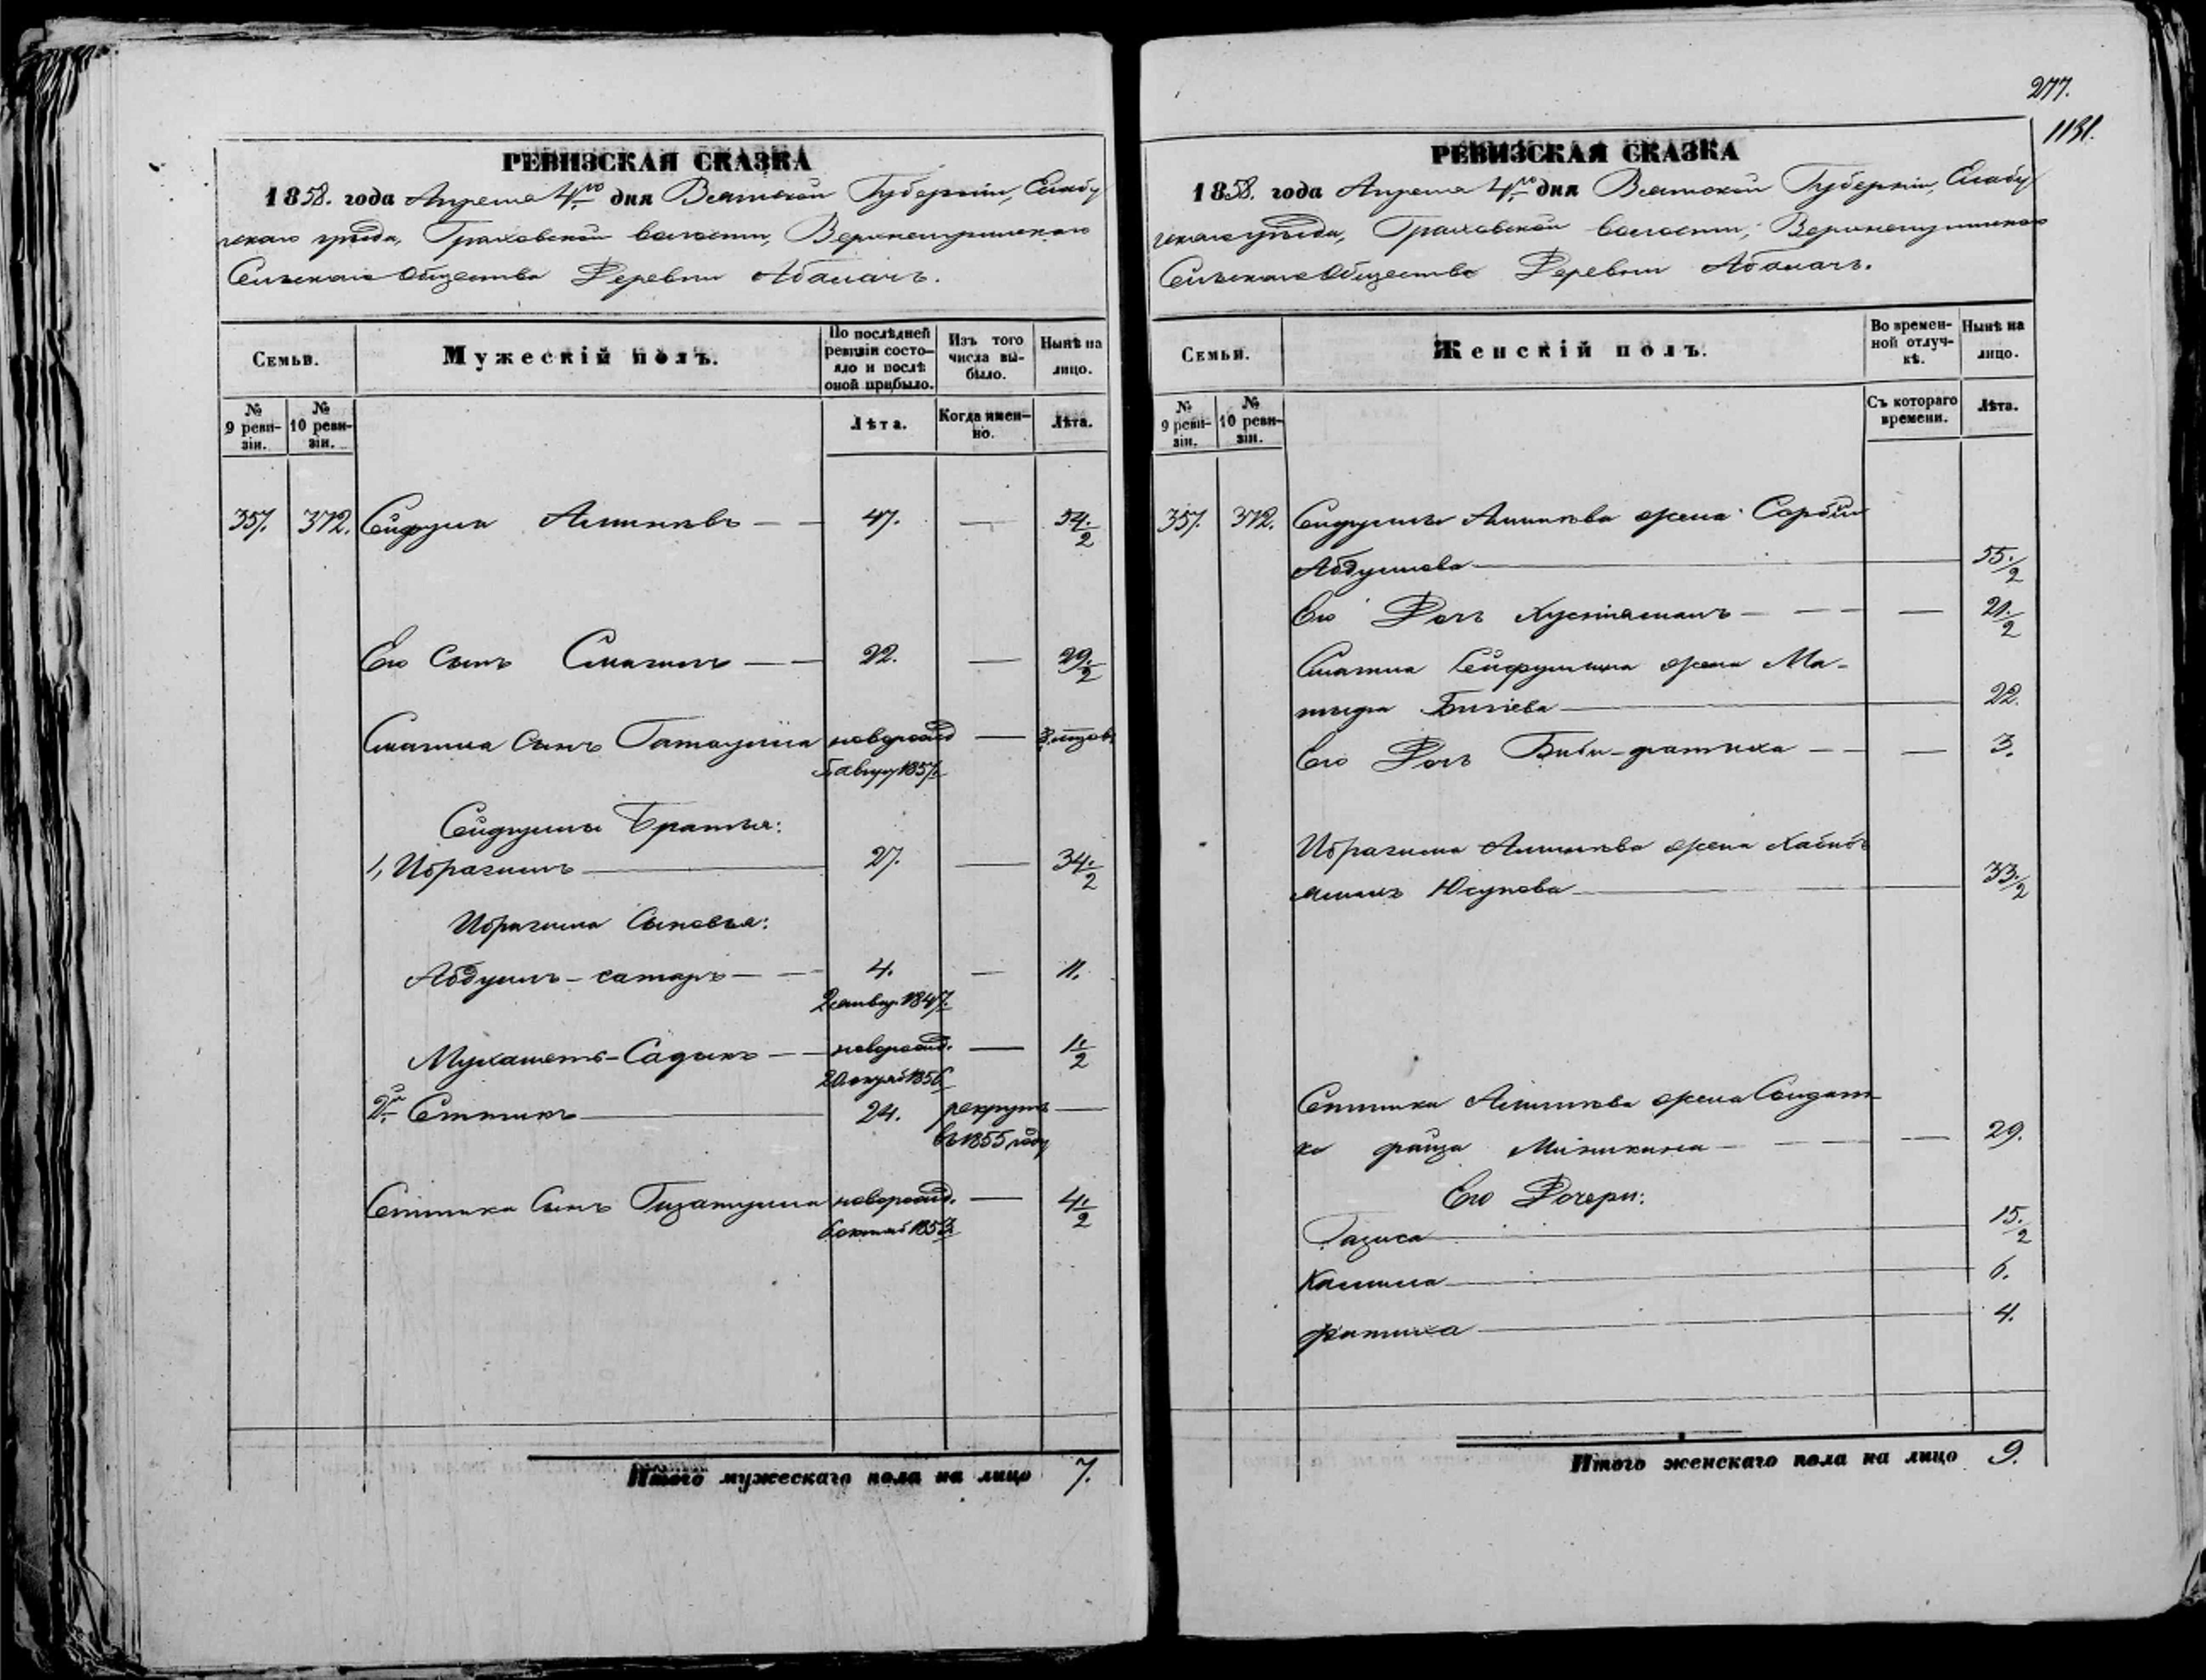 277.
1131.
РЕВИЗСКАЯ СКАЗКА
1858. года Апреля 4го дня Вятской Губернии, Елабу
гскаго уѣзда, Граховской волости,
Сельскаго Общества Деревни Абалачь.
Семьи.
Мужескій полъ.
По послѣдней ревизіи состояло и послѣ оной прибыло.
Изъ того числа выбыло.
Нынѣ на лицо.
№ 9 ревизіи.
№ 10 ревизіи.
Лѣта.
Когда именно.
Лѣта.
357. 372. Сейфулла 47. — 54. 1/2
Его Сынъ Смагилъ — — 22. — 29. 1/2
Смагила Сынъ Гатаулла новорожд — 3. мѣсяц
5 август 1857.
Сейфуллы Братья:
1, Ибрагимъ — 27. — 34. 1/2
Ибрагима Сыновья:
Абдулъ-сатаръ — — 4. — 11.
1847.
Мухаметъ-Садыкъ — — новорожд. — 1. 1/2
20 1856
2й Ситтикъ — 24. рекрутъ —
въ 1855 году
Ситтика Сынъ Гизатулла новорожд. — 4. 1/2
6 октяб 1853.
Итого мужескаго пола на лицо 7.
РЕВИЗСКАЯ СКАЗКА
1858. года Апреля 4го дня Вятской Губернии, Елабу
гскаго уѣзда, Граховской волости,
Сельскаго Общества Деревни Абалачь.
Семьи.
Женскій полъ.
Во временной отлучкѣ.
Нынѣ на лицо.
№ 9 ревизіи.
№ 10 ревизіи.
Съ котораго времени.
Лѣта.
357. 372. Сейфуллы жена
Абдуллова — 55. 1/2
Его Дочь — — — 21. 1/2
Смагила Сейфуллина жена Ма-
— 22.
Его Дочь Биби-фатиха — — — 3.
Ибрагима жена
Юсупова — 33. 1/2
Ситтика жена Солдат
ка фаиза — — — 29.
Его Дочери:
— 15. 1/2
Камила — 6.
фатиха — 4.
Итого женскаго пола на лицо 9.